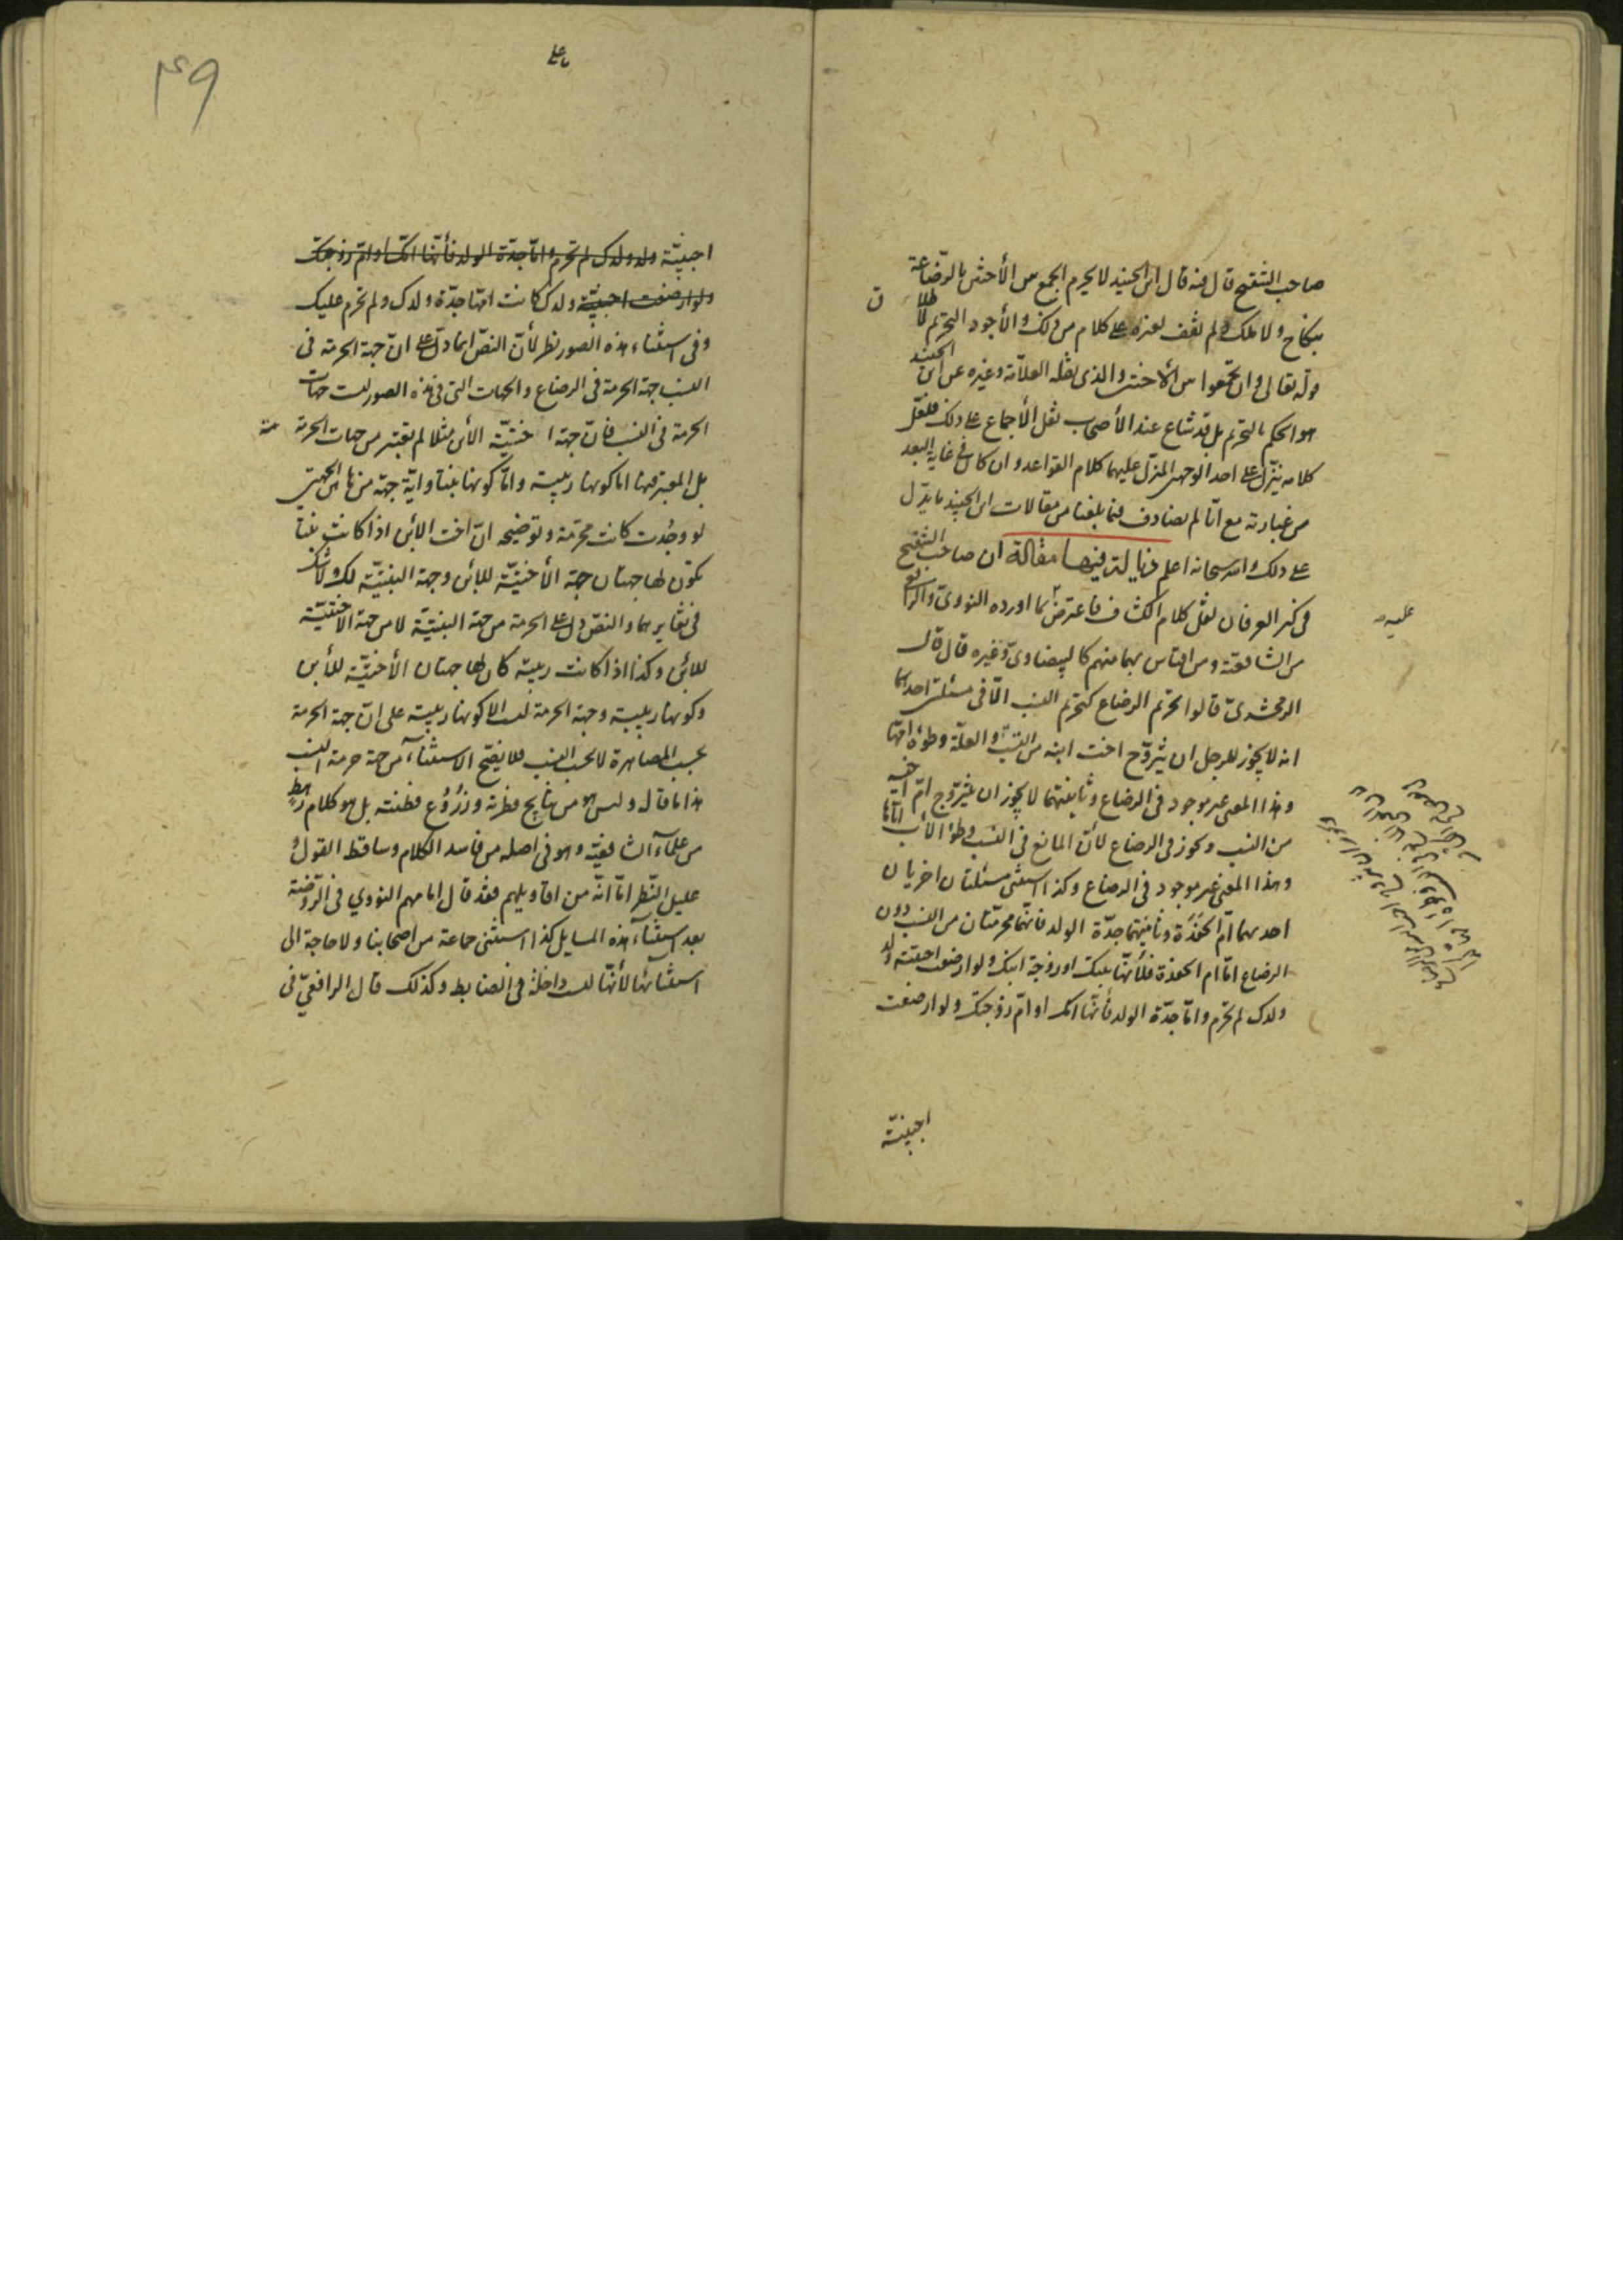 صاحب التنقيح قال فيه قال ابن الجنيد لا يحرم الجمع بين الأختين بالرضاعة
بنكاح ولا ملك ولم نقف لغيره على كلام من ذلك والأجود التحريم
قوله تعالى وان تجمعوا بين الأختين والذي نقله العلامة وغيره عن ابن الجنيد
هو الحكم بالتحريم بل قد شاع عند الأصحاب نقل الأجماع على ذلك فلعل
كلامه ينزل على احد الوجهين المنزل عليهما كلام القواعد وان كان في غاية البعد
من عبارته مع انا لم نصادف فيما بلغنا من مقالات ابن الجنيد ما يدل
على ذلك والله سبحانه اعلم مقالة ان صاحب التنقيح
في كنز العرفان نقل كلام الكشاف فاعترض بما اورده النووي والرافعي
من الشافعية ومن اقتاس بهما منهم كالبيضاوي وغيره قال قال
الزمخشري قالوا تحريم الرضاع كتحريم النسب الا في مسئلتين احديهما
انه لا يجوز للرجل ان يتزوج اخت ابنه من النسب والعلة وطؤه امها
وهذا المعنى غير موجود في الرضاع وثانيتهما لا يجوز ان يتزوج ام اخيه
من النسب ويجوز في الرضاع لأن المانع في النسب وطؤ الأب اياها
وهذا المعنى غير موجود في الرضاع وكذا استثنى مسئلتان اخريان
احديهما ام الحفدة وثانيتهما جدة الولد فانهما محرمتان من النسب دون
الرضاع اما ام الحفدة فلأنها بنتك او زوجة ابنك ولو ارضعت اجنبية ولد
ولدك لم تحرم واما جدة الولد فأنها امك او ام زوجتك ولو ارضعت
اجنبية
عليه
٤٩
اجنبية ولد ولدك لم تحرم واما جدة الولد فأنها امك او ام زوجتك
ولو ارضعت اجنبية ولدك كانت امها جدة ولدك ولم تحرم عليك
وفي استثناء هذه الصور نظر لأن النص انما دل على ان جهة الحرمة في
النسب جهة الحرمة في الرضاع والجهات التي في هذه الصور ليست جهات
الحرمة في النسب فان جهة اختية الابن مثلا لم تعتبر من جهات الحرمة
بل المعتبر فيها اما كونها ربيبة واما كونها بنتا واية جهة من هاتين الجهتين
لو وجدت كانت محرمة وتوضيحه ان اخت الابن اذا كانت بنتا
تكون لها جهتان جهة الأختية للابن وجهة البنتية لك ولا شك
في تغايرهما والنص دل على الحرمة من جهة البنتية لا من جهة الاختية
للابن وكذا اذا كانت ربيبة كان لها جهتان الأختية للأبن
وكونها ربيبة وجهة الحرمة ليست الا كونها ربيبة على ان جهة الحرمة
بحسب المصاهرة لا بحسب النسب فلا يصح الاستثناء من جهة حرمة النسب
هذا ما قال وليس هو من نتايج فطرته وزروع فطنته بل هو كلام رهط
من علماء الشافعية وهو في اصله من فاسد الكلام وساقط القول و
عليل النظر اما انه من اقاويلهم فقد قال امامهم النووي في الروضة
بعد استثناء هذه المسايل كذا استثنى جماعة من اصحابنا ولا حاجة الى
استثنائها لأنها ليست داخلة في الضابط وكذلك قال الرافعي في